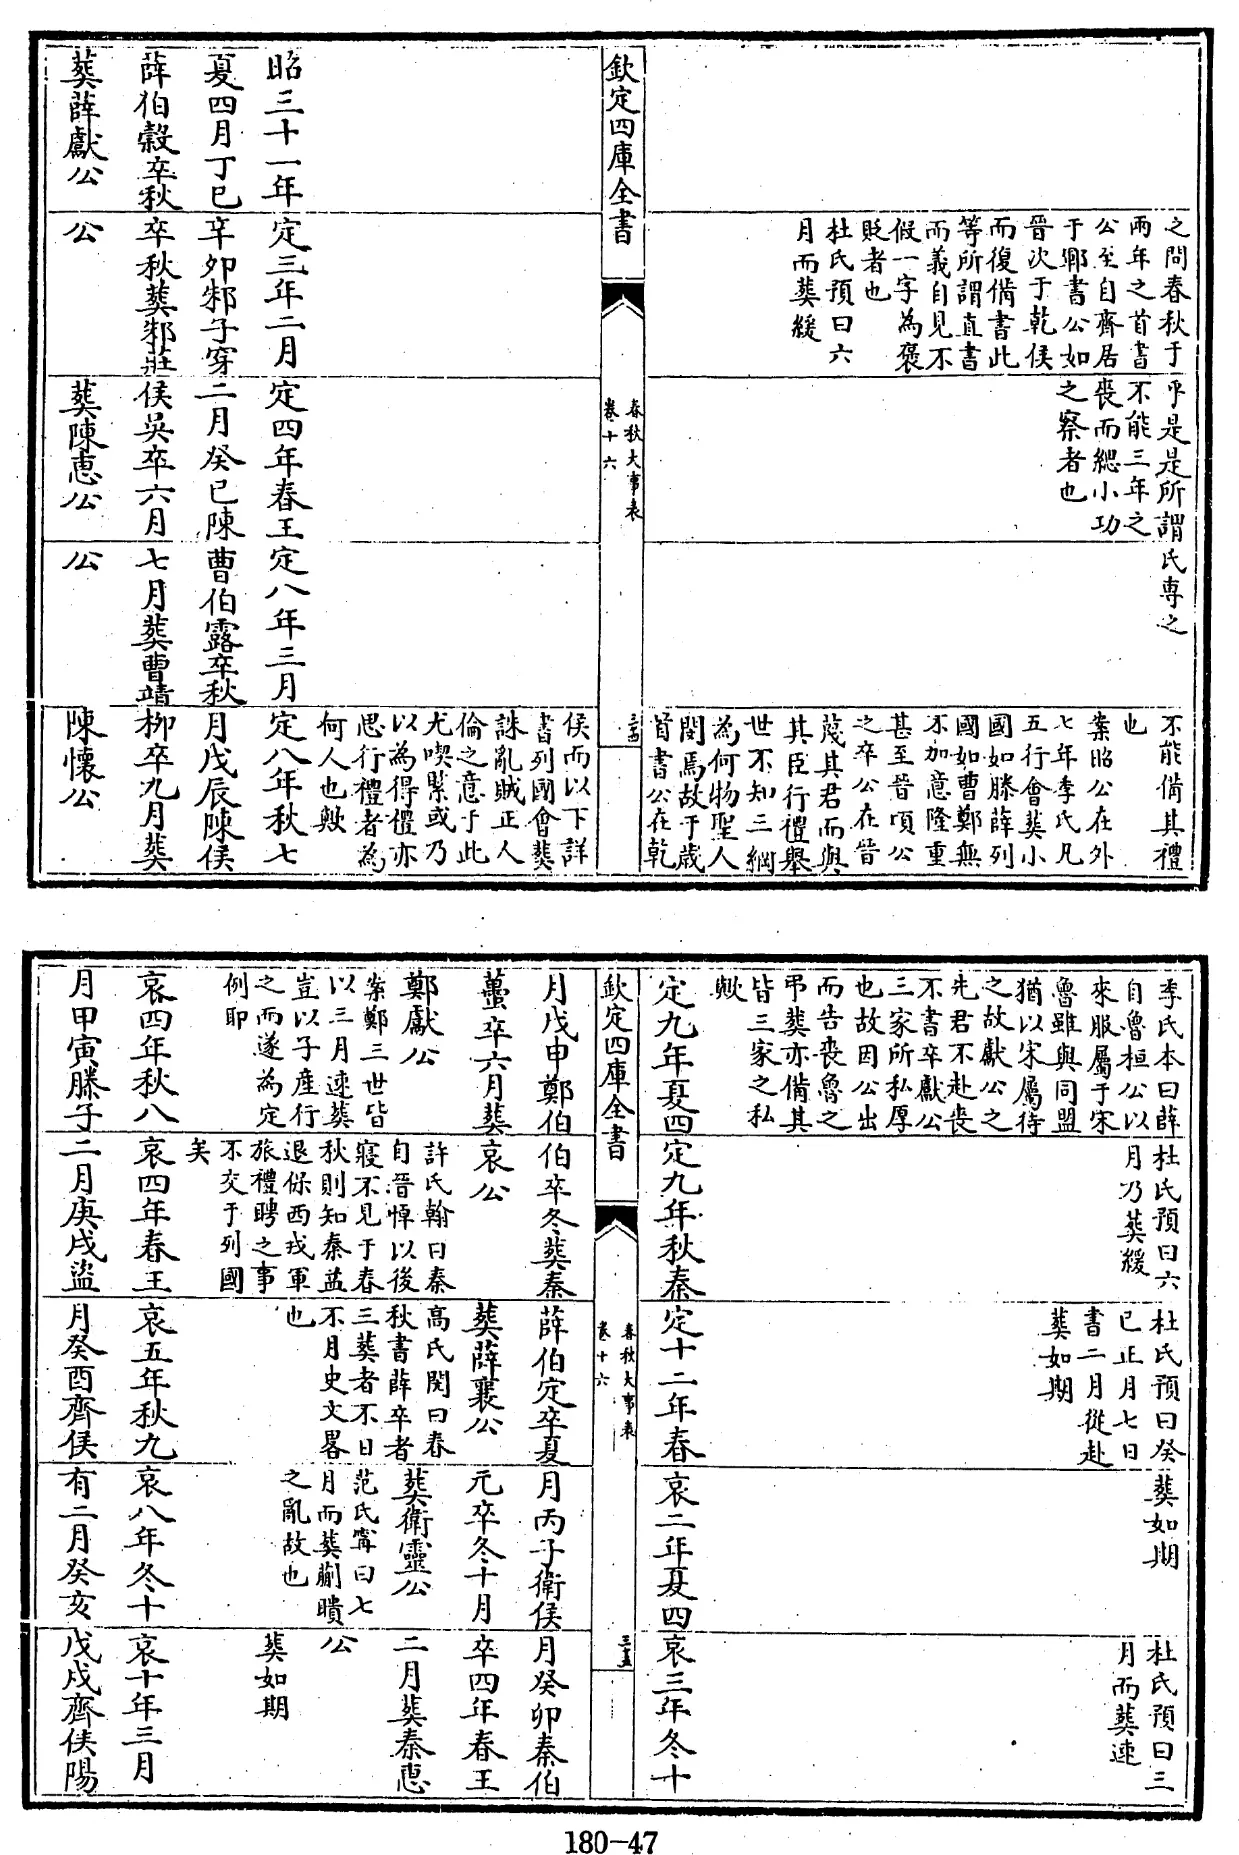 之問春秋于
兩年之首書
公至自齊居
于鄆書公如
晉次于乾侯
而復備書此
等所謂直書
而義自見不
假一字為褒
貶者也
杜氏預曰六
月而葬緩
乎是是所謂
不能三年之
喪而緦小功
之察者也
氏専之
不能備其禮
也
案昭公在外
七年季氏凡
五行會葬小
國如滕薛列
國如曹鄭無
不加意隆重
甚至晉頃公
之卒公在晉
蔑其君而與
其臣行禮舉
世不知三綱
為何物聖人
閔焉故于歲
首書公在乾
欽定四庫全書
春秋大事表
卷十六
三四
昭三十一年
夏四月丁巳
薛伯穀卒秋
葬薛獻公
定三年二月
辛卯邾子穿
卒秋葬邾莊
公
定四年春王
二月癸巳陳
侯吳卒六月
葬陳惠公
定八年三月
曹伯露卒秋
七月葬曹靖
公
侯而以下詳
書列國會葬
誅亂賊正人
倫之意于此
尤喫緊或乃
以為得禮亦
思行禮者為
何人也歟
定八年秋七
月戊辰陳侯
柳卒九月葬
陳懷公
季氏本曰薛
自魯桓公以
來服屬于宋
魯雖與同盟
猶以宋屬待
之故獻公之
先君不赴喪
不書卒獻公
三家所私厚
也故因公出
而告喪魯之
弔葬亦備其
皆三家之私
歟
定九年夏四
杜氏預曰六
月乃葬緩
定九年秋秦
杜氏預曰癸
巳正月七日
書二月從赴
葬如期
定十二年春
葬如期
哀二年夏四
杜氏預曰三
月而葬速
哀三年冬十
欽定四庫全書
春秋大事表
卷十六
三五
月戊申鄭伯
蠆卒六月葬
鄭獻公
案鄭三世皆
以三月速葬
豈以子產行
之而遂為定
例耶
哀四年秋八
月甲寅滕子
伯卒冬葬秦
哀公
許氏翰曰秦
自晉悼以後
寢不見于春
秋則知秦益
退保西戎軍
旅禮聘之事
不交于列國
矣
哀四年春王
二月庚戌盜
薛伯定卒夏
葬薛襄公
高氏閌曰春
秋書薛卒者
三葬者不日
不月史文畧
也
哀五年秋九
月癸酉齊侯
月丙子衛侯
元卒冬十月
葬衛靈公
范氏甯曰七
月而葬蒯聵
之亂故也
哀八年冬十
有二月癸亥
月癸卯秦伯
卒四年春王
二月葬秦惠
公
葬如期
哀十年三月
戊戌齊侯陽
180-47